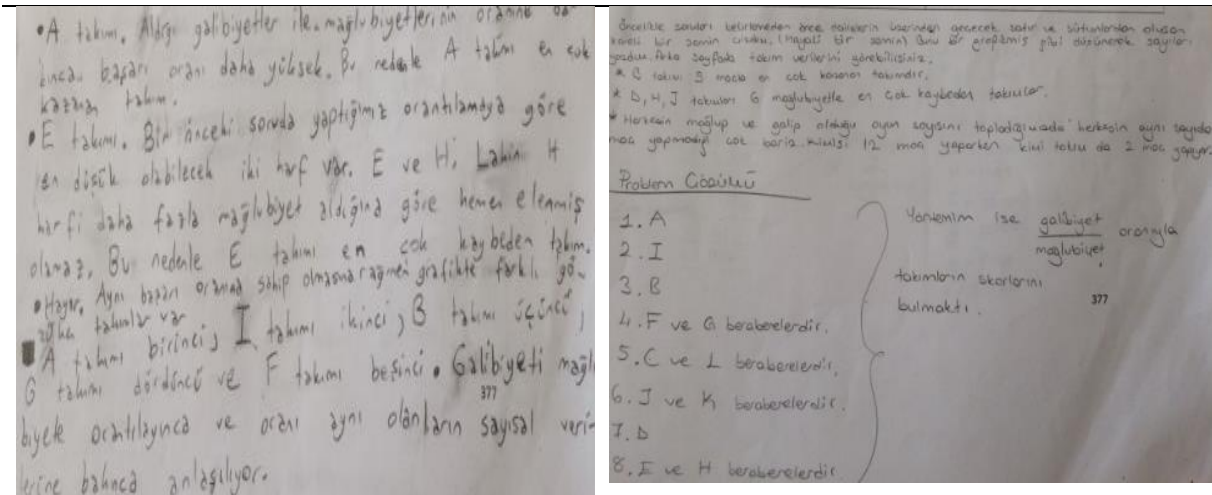 •A takımı. Aldığı galibiyetler ile mağlubiyetlerinin oranına ba-
kınca başarı oranı daha yüksek. Bu nedenle A takımı en çok
kazanan takım.
•E takımı. Bir önceki soruda yaptığımız orantılamaya göre
en düşük olabilecek iki harf var. E ve H. Lakin H
harfi daha fazla mağlubiyet aldığına göre hemen elenmiş
olamaz. Bu nedenle E takımı en çok kaybeden takım.
•Hayır. Aynı başarı oranına sahip olmasına rağmen grafikte farklı gö-
takımlar var
A takımı birinci, I takımı ikinci, B takımı üçüncü,
G takımı dördüncü ve F takımı beşinci. Galibiyeti mağlu
377
biyete orantılayınca ve oranı aynı olanların sayısal veri-
lerine bakınca anlaşılıyor.
Öncelikle soruları belirlemeden önce dairelerin üzerinden geçecek satır ve sütunlardan oluşan
kareli bir zemin çizdik. (Hayali bir zemin) Bunu bir grafikmiş gibi düşünerek sayıları
yazdık. Arka sayfada takım verilerini görebilirsiniz.
* G takımı 5 maçla en çok kazanan takımdır.
* D, H, J takımları 6 mağlubiyetle en çok kaybeden takımlar.
* Herkesin mağlup ve galip olduğu oyun sayısını topladığımızda herkesin aynı sayıda
maç yapmadığı çok bariz. Kimisi 12 maç yaparken kimi takım da 2 maç yapıyor.
Problem Çözümü
1. A
2. I
3. B
4. F ve G beraberelerdir.
5. C ve L beraberelerdir.
6. J ve K beraberelerdir.
7. D
8. E ve H beraberelerdir.
Yöntemim ise galibiyet
mağlubiyet oranıyla
takımların skorlarını
bulmaktı.
377